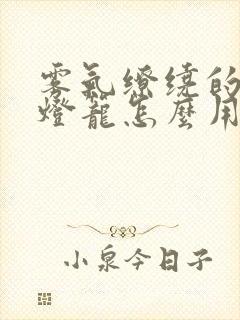 雾氣繚绕的
燈籠怎麽用
小泉今日子